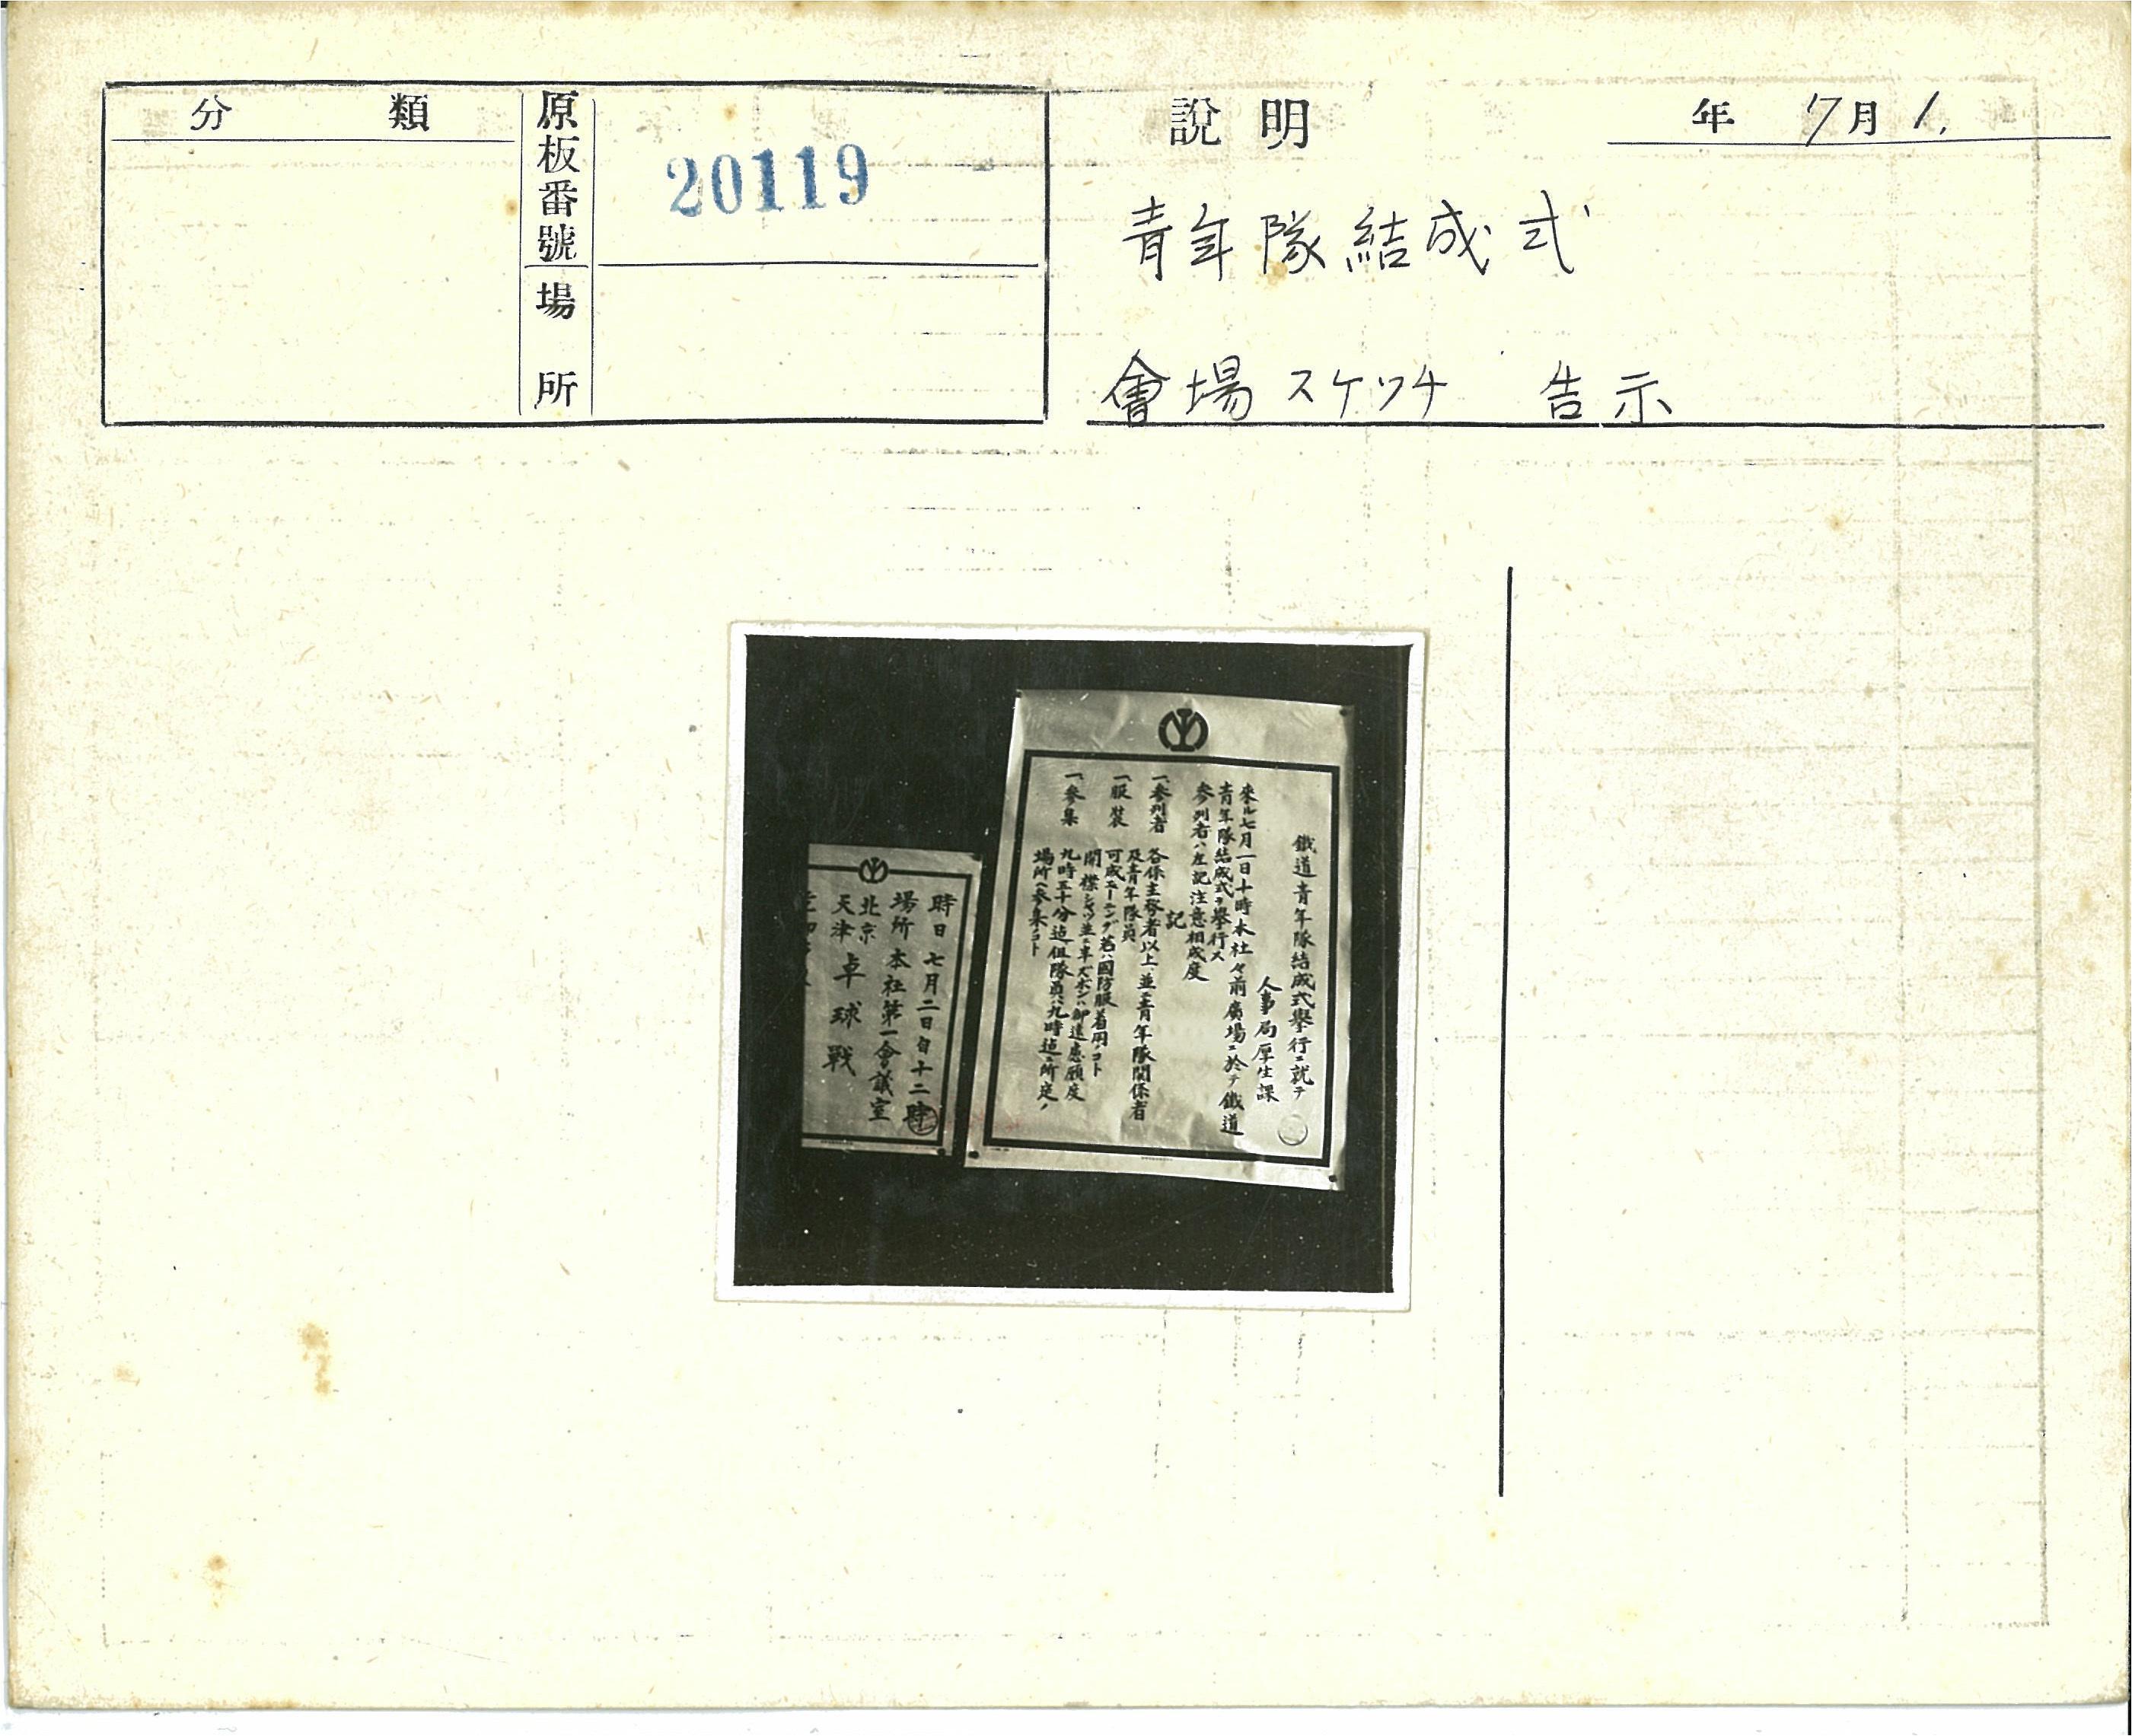 分類
原板番號
20119
場所
説明
年 7月1.
青年隊結成式
會場スケッチ 告示
鐵道青年隊結成式擧行ニ就テ
人事局厚生課
來ル七月一日十時本社々前廣場ニ於テ鐵道
青年隊結成式ヲ擧行ス
參列者ハ左記注意相成度
記
一、參列者 各係主務者以上並ニ青年隊關係者
及青年隊員
一、服裝 可成モーニング若ハ國防服着用ノコト
開襟シャツ並ニ半ズボンハ御遠慮願度
一、參集 九時五十分迄但隊員ハ九時迄ニ所定ノ
場所ヘ參集ノコト
時日 七月二日自十二時
場所 本社第一會議室
北京
天津 卓球戰